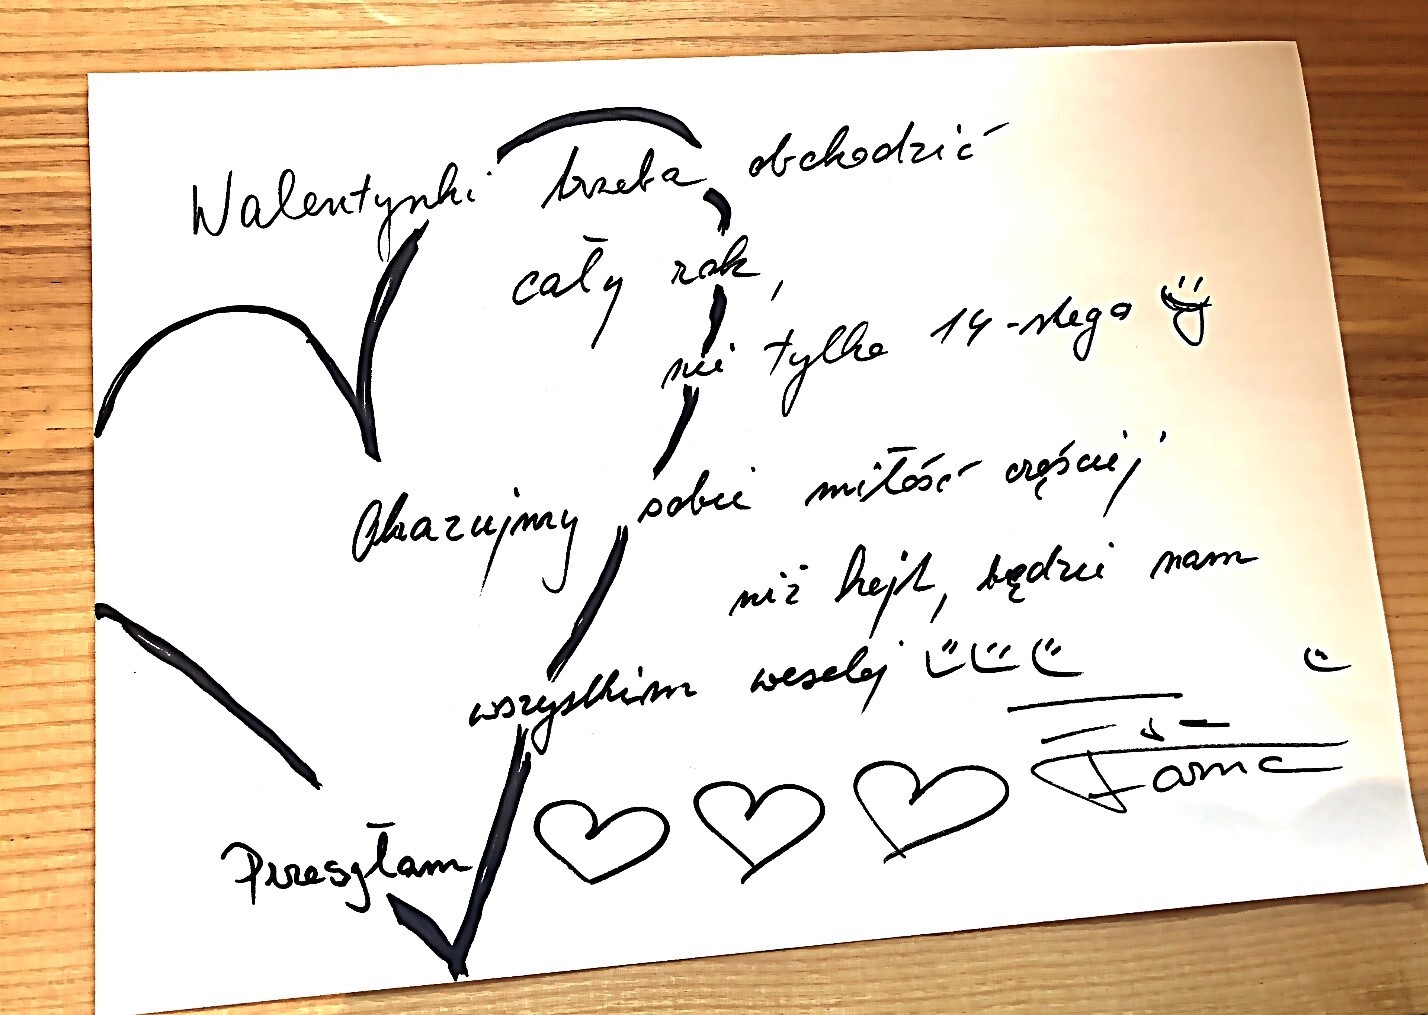 Walentynki trzeba obchodzić
cały rok,
nie tylko 14-stego
Okazujmy sobie miłość częściej
niż hejt, będzie nam
wszystkim weselej
Przesyłam
Farna